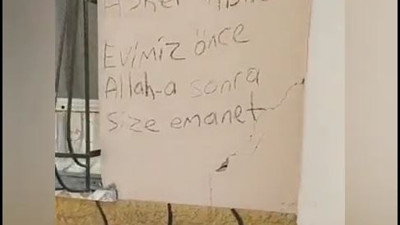 Evimiz önce
Allah-a sonra
size emanet